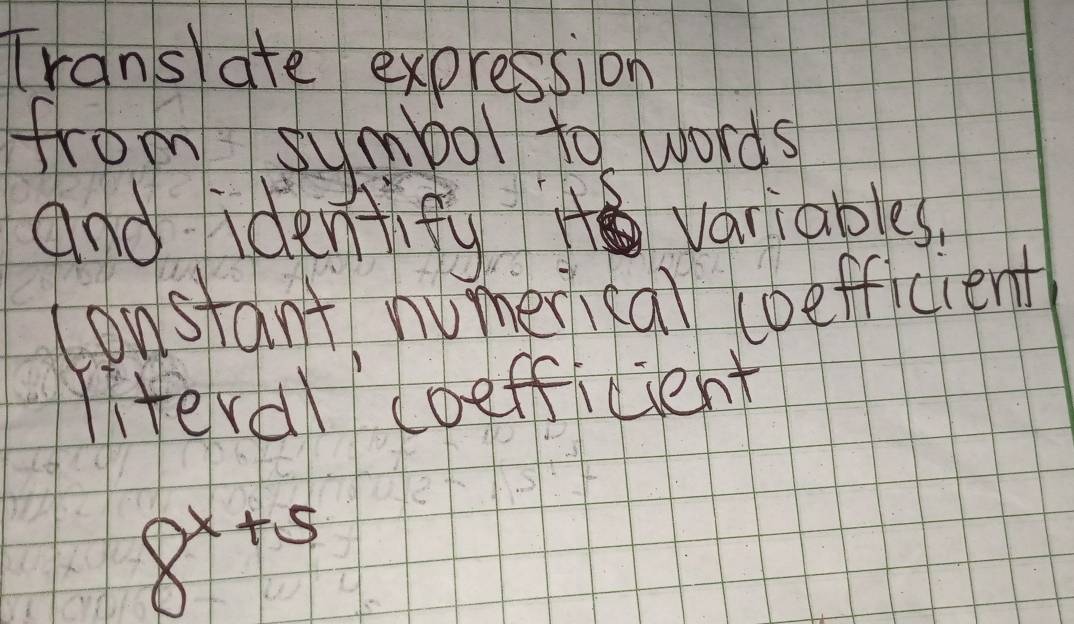 Translate expression
from symbol to words
and identify its variables,
constant, numerical coefficient,
literal coefficient
8^x+5